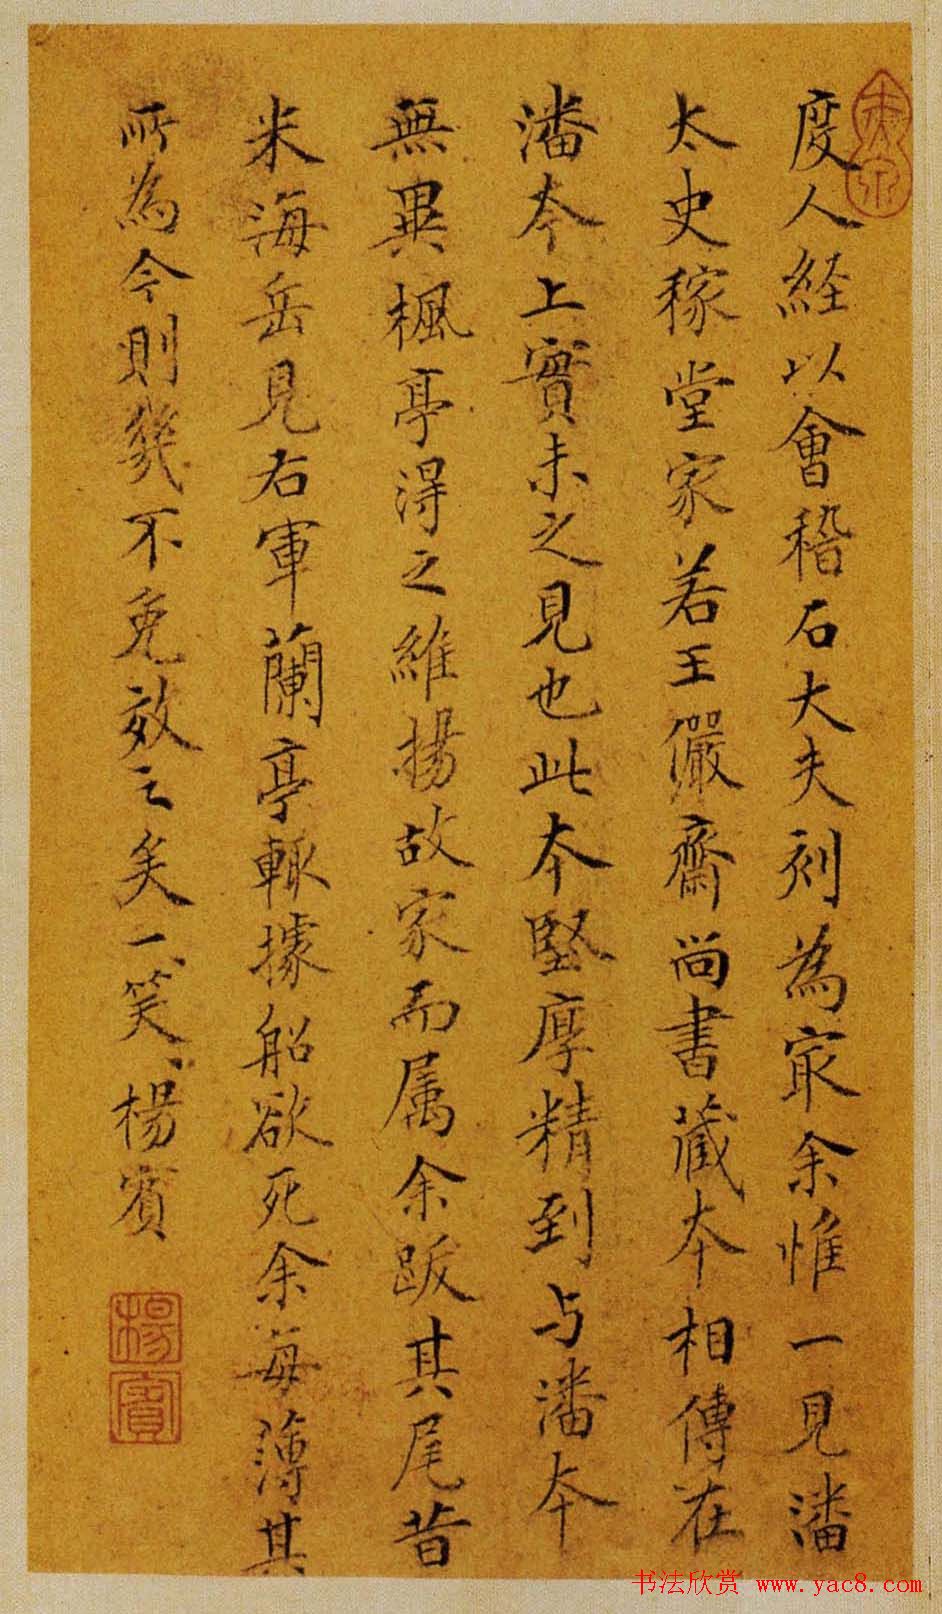 度人経以會稽石大夫刻為㝡余惟一見潘
太史稼堂家若王儼齋尚書藏本相傳在
潘本上實未之見也此本堅厚精到与潘本
無異楓亭得之維揚故家而属余跋其尾昔
米海岳見右軍蘭亭輙據船欲死余每薄其
所為今則幾不免效之矣一笑楊賓
楊賓
书法欣赏 www.yac8.com